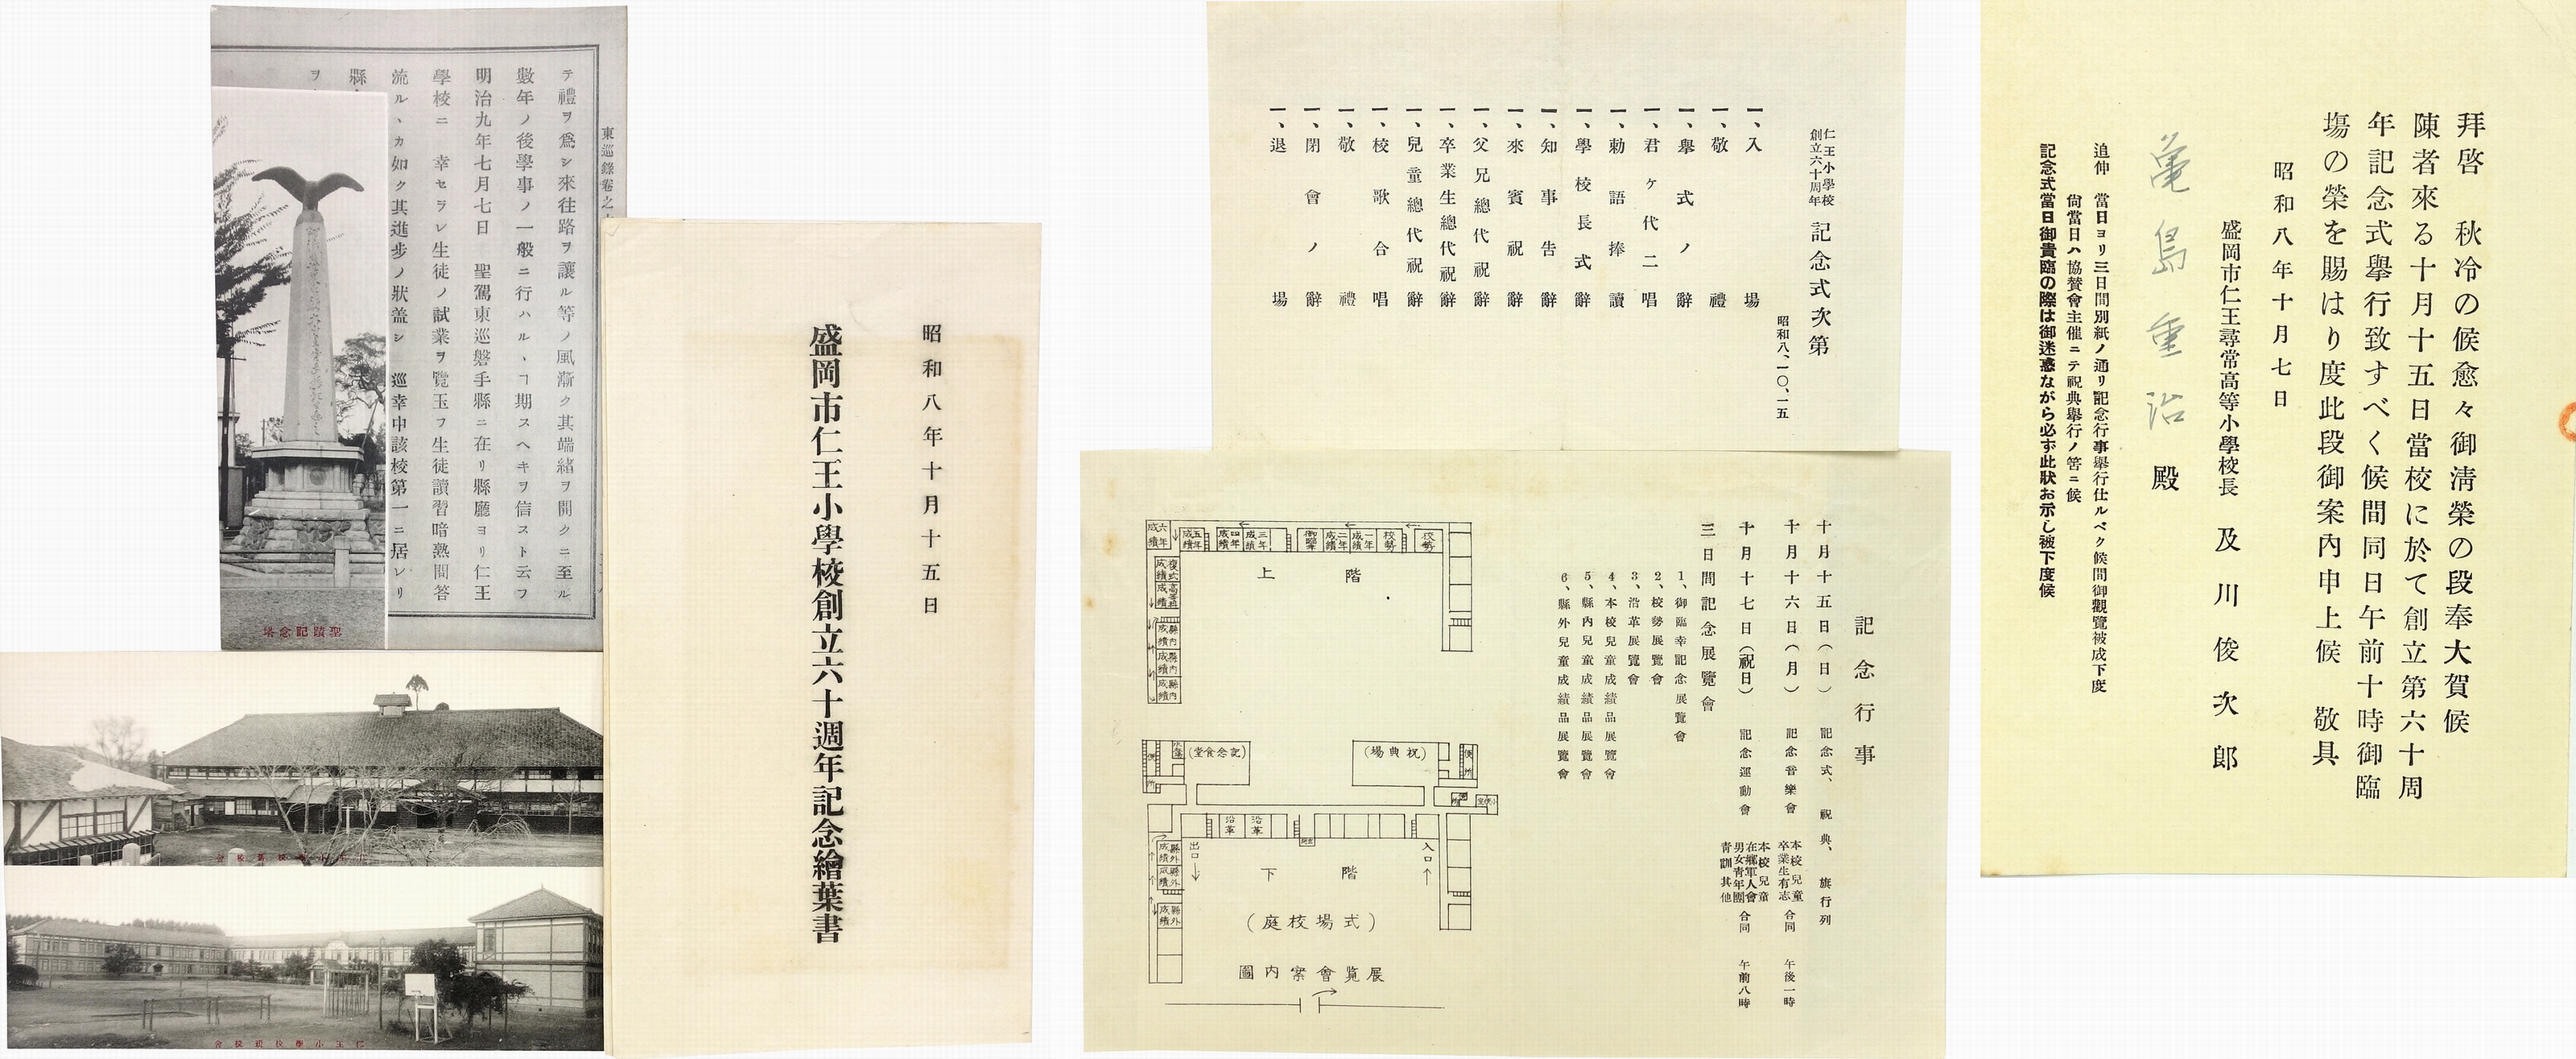 東巡錄卷之
テ禮ヲ爲シ來往路ヲ讓ル等ノ風漸ク其端緒ヲ開クニ至ル
數年ノ後學事ノ一般ニ行ハル、ヿ期スヘキヲ信スト云フ
明治九年七月七日 聖駕東巡磐手縣ニ在リ縣廳ヨリ仁王
學校ニ 幸セラレ生徒ノ試業ヲ覽玉フ生徒讀習暗熟問答
流ル、カ如ク其進步ノ狀盖シ 巡幸中該校第一ニ居レリ
縣
ヲ
聖蹟記念塔
仁王小學校舊校舍
仁王小學校現校舍
昭和八年十月十五日
盛岡市仁王小學校創立六十週年記念繪葉書
仁王小學校
創立六十周年
記念式次第
昭和八、一〇、一五
一、入場
一、敬禮
一、擧式ノ辭
一、君ヶ代二唱
一、勅語捧讀
一、學校長式辭
一、知事告辭
一、來賓祝辭
一、父兄總代祝辭
一、卒業生總代祝辭
一、兒童總代祝辭
一、校歌合唱
一、敬禮
一、閉會ノ辭
一、退場
記念行事
十月十五日(日) 記念式、祝典、旗行列
十月十六日(月) 記念音樂會 本校兒童 卒業生有志 合同 午後一時
十月十七日(祝日) 記念運動會 本校兒童 在鄕軍人會 男女青年團 青訓其他 合同 午前八時
三日間記念展覽會
1、御臨幸記念展覽會
2、校勢展覽會
3、沿革展覽會
4、本校兒童成績品展覽會
5、縣內兒童成績品展覽會
6、縣外兒童成績品展覽會
校勢
校勢
一年成績
二年成績
三年成績
四年成績
五年成績
六年成績
複式成績
高等科成績
縣內成績
縣內成績
縣內成績
上階
(祝典場)
(記念食堂)
便所
沿革
沿革
入口
出口
縣外成績
縣外成績
縣外成績
下階
(式場校庭)
展覽會案內圖
拜啓 秋冷の候愈々御淸榮の段奉大賀候
陳者來る十月十五日當校に於て創立第六十周
年記念式擧行致すべく候間同日午前十時御臨
塲の榮を賜はり度此段御案內申上候 敬具
昭和八年十月七日
盛岡市仁王尋常高等小學校長 及川俊次郎
亀島重治 殿
追伸 當日ヨリ三日間別紙ノ通リ記念行事擧行仕ルベク候間御觀覽被成下度
尙當日ハ協贊會主催ニテ祝典擧行ノ筈ニ候
記念式當日御貴臨の際は御迷惑ながら必ず此狀お示し被下度候